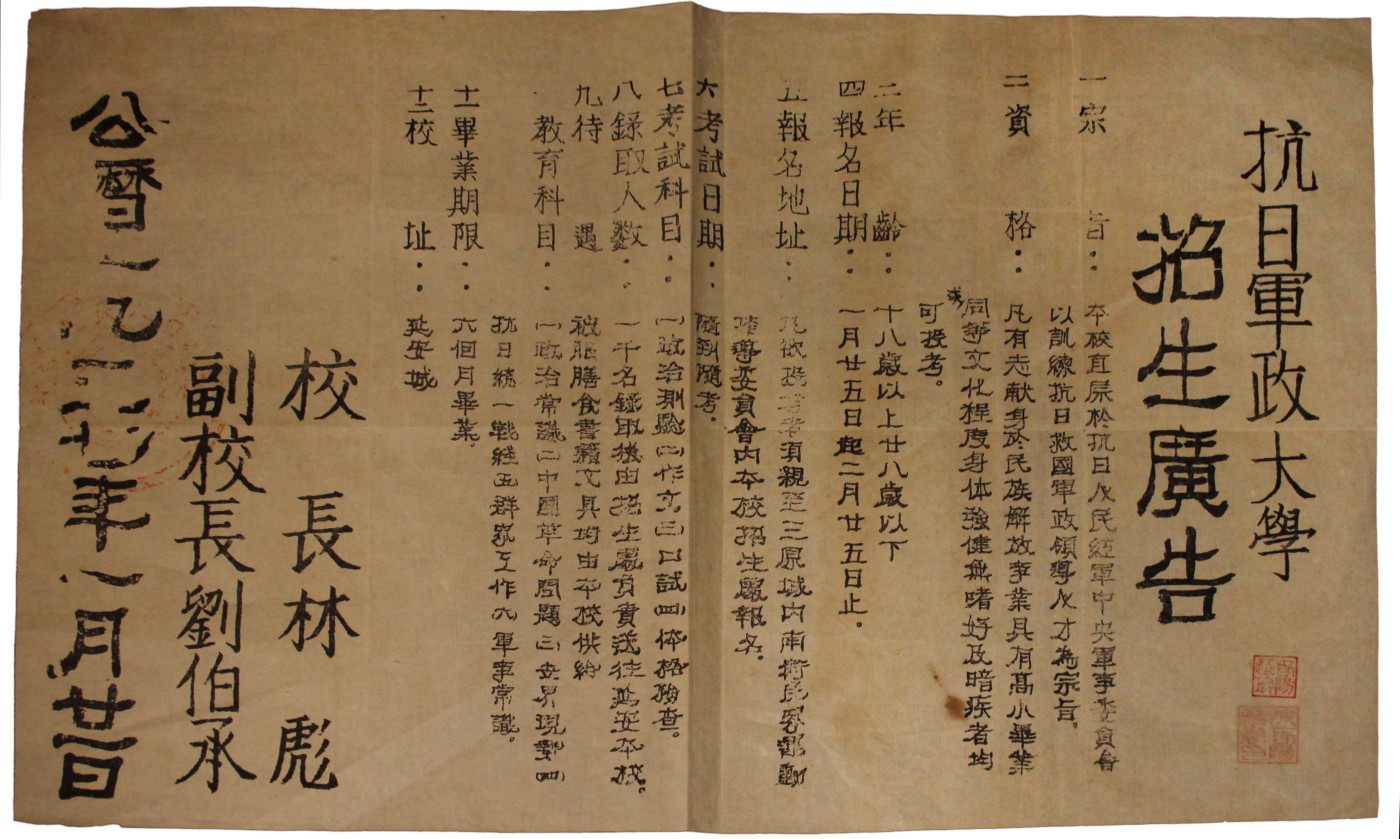 抗日軍政大學
招生廣告
一宗旨：本校直屬於抗日人民紅軍中央軍事委員會
以訓練抗日救國軍政領導人才為宗旨。
二資格：凡有志献身於民族解放事業具有高小畢業
或同等文化程度身体強健無嗜好及暗疾者均
可投考。
三年齡：十八歲以上廿八歲以下
四報名日期：一月廿五日起二月廿五日止。
五報名地址：凡欲投考者須親至三原城内南街民眾運動
指導委員會内本校招生處報名。
六考試日期：隨到隨考。
七考試科目：㈠政治測驗㈡作文㈢口試㈣体格檢查。
八錄取人数：一千名錄取後由招生處負責送往延安本校。
九待遇：被服膳食書籍文具均由本校供給
教育科目：㈠政治常識㈡中國革命問題㈢世界現勢㈣
抗日統一戰綫五群眾工作六軍事常識。
十一畢業期限：六個月畢業。
十二校址：延安城
校長林彪
副校長劉伯承
公曆一九三六年一月廿三日